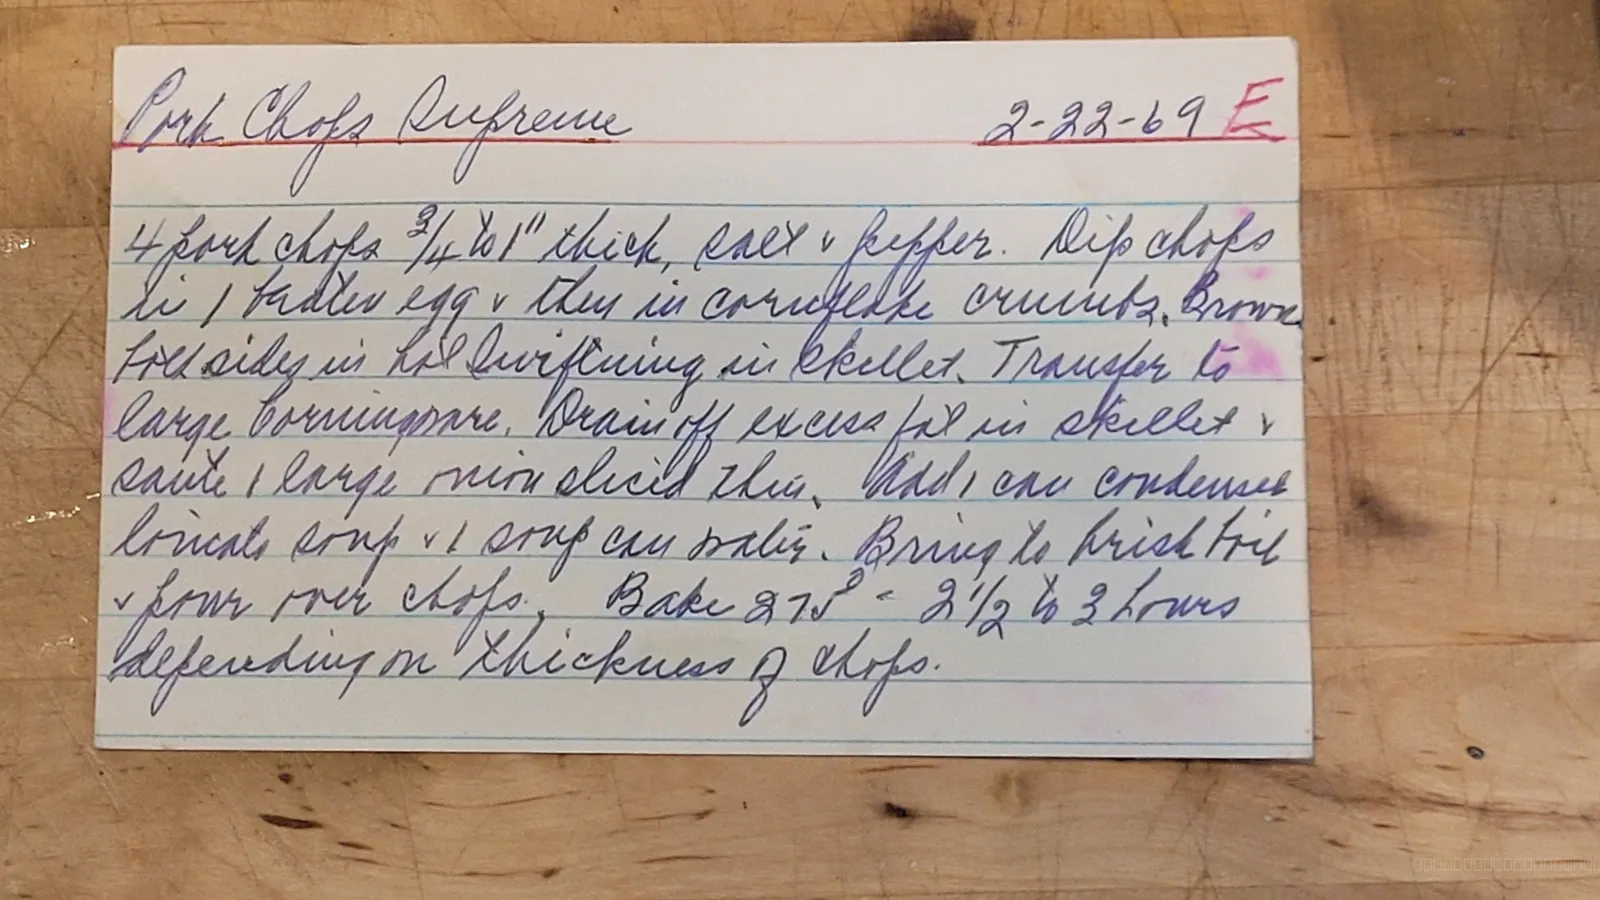 Pork Chops Supreme 2-22-69 E
4 pork chops 3/4 to 1" thick, salt & pepper. Dip chops
in 1 beaten egg & then in cornflake crumbs. Brown
both sides in hot Swiftning in skillet. Transfer to
large Corningware. Drain off excess fat in skillet &
saute 1 large onion sliced thin. Add 1 can condensed
tomato soup & 1 soup can water. Bring to brisk boil
& pour over chops. Bake 275° - 2 1/2 to 3 hours
depending on thickness of chops.